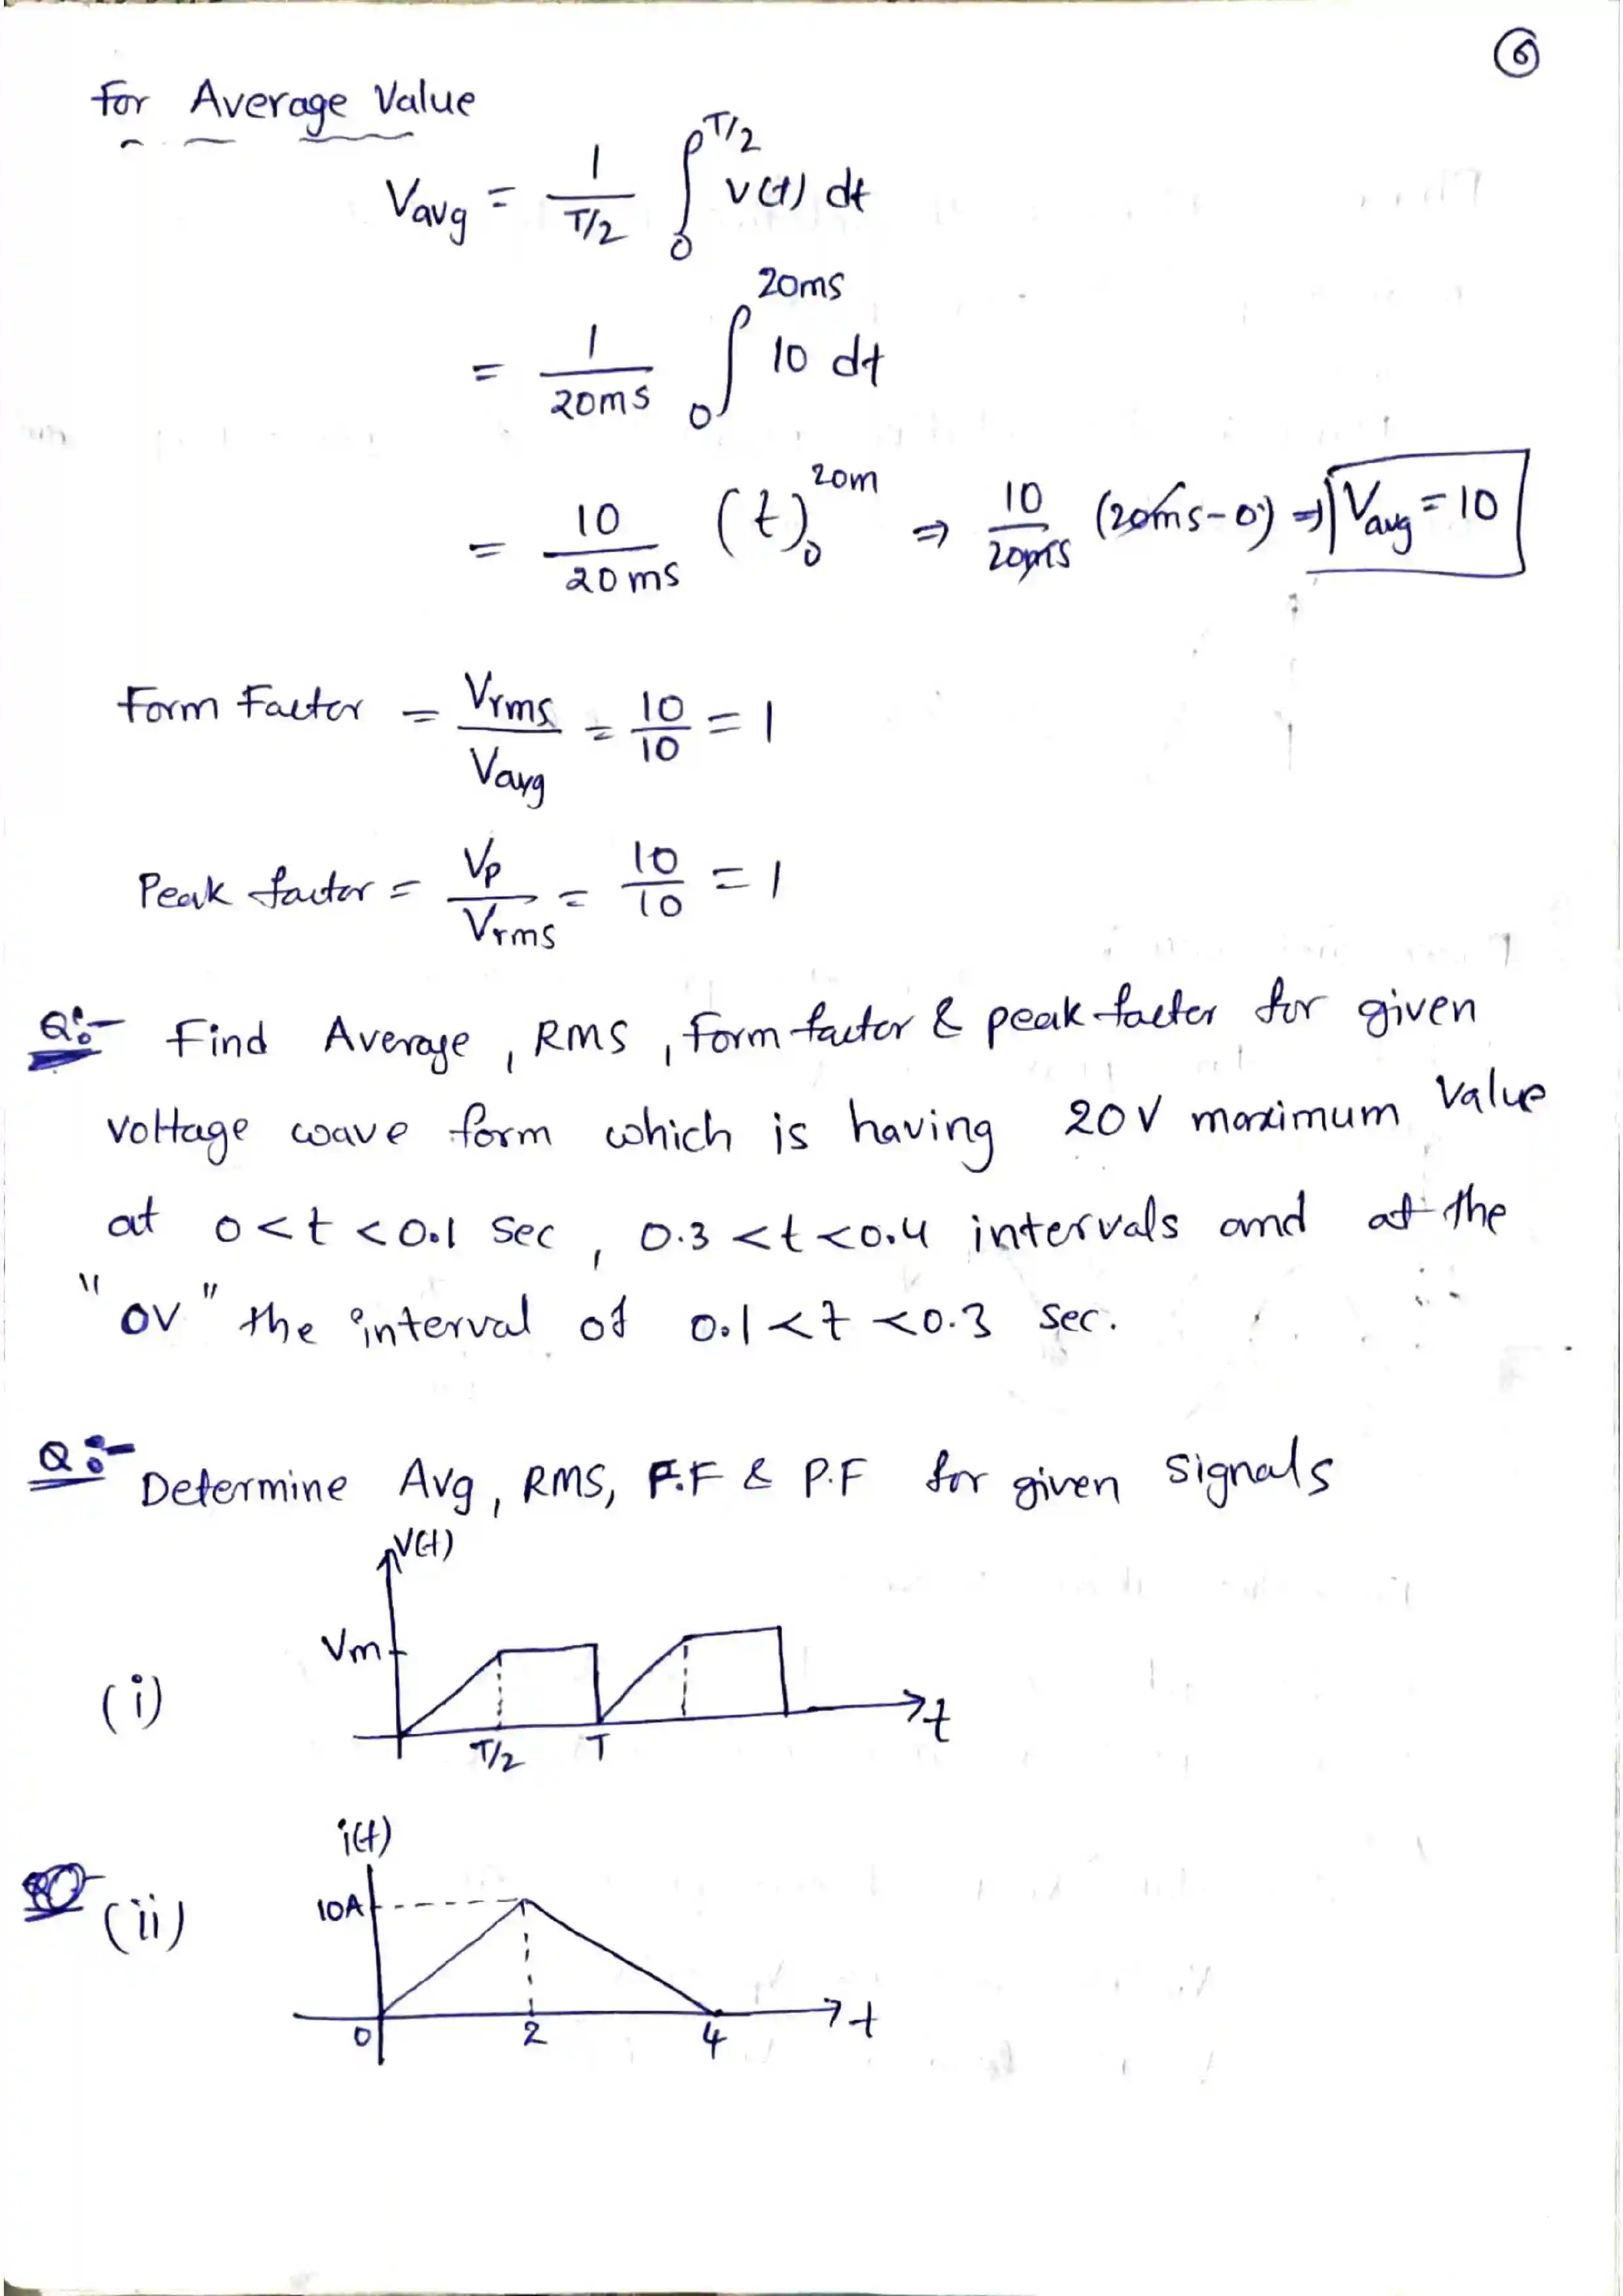 6
For Average Value
Vavg = 1/(T/2) ∫₀^(T/2) v(t) dt
= 1/20ms ∫₀^20ms 10 dt
= 10/20ms (t)₀^20m ⇒ 10/20ms (20ms-0) ⇒ Vavg = 10
Form Factor = Vrms/Vavg = 10/10 = 1
Peak factor = Vp/Vrms = 10/10 = 1
Q:- Find Average, RMS, Form factor & peak factor for given
voltage wave form which is having 20V maximum value
at 0<t<0.1 sec, 0.3<t<0.4 intervals and at the
"0V" the interval of 0.1<t<0.3 sec.
Q:- Determine Avg, RMS, F.F & P.F for given signals
V(t)
Vm
(i)
t
T/2 T
i(t)
10A
(ii)
t
0 2 4